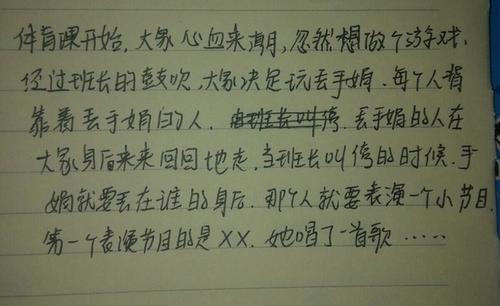 体育课开始,大家心血来潮,忽然想做个游戏.
经过班长的鼓吹,大家决定玩丢手娟.每个人背
靠着丢手娟的人.由班长叫停.丢手娟的人在
大家身后来来回回地走.当班长叫停的时候.手
娟就要丢在谁的身后.那个人就要表演一个小节目.
第一个表演节目的是XX.她唱了一首歌……